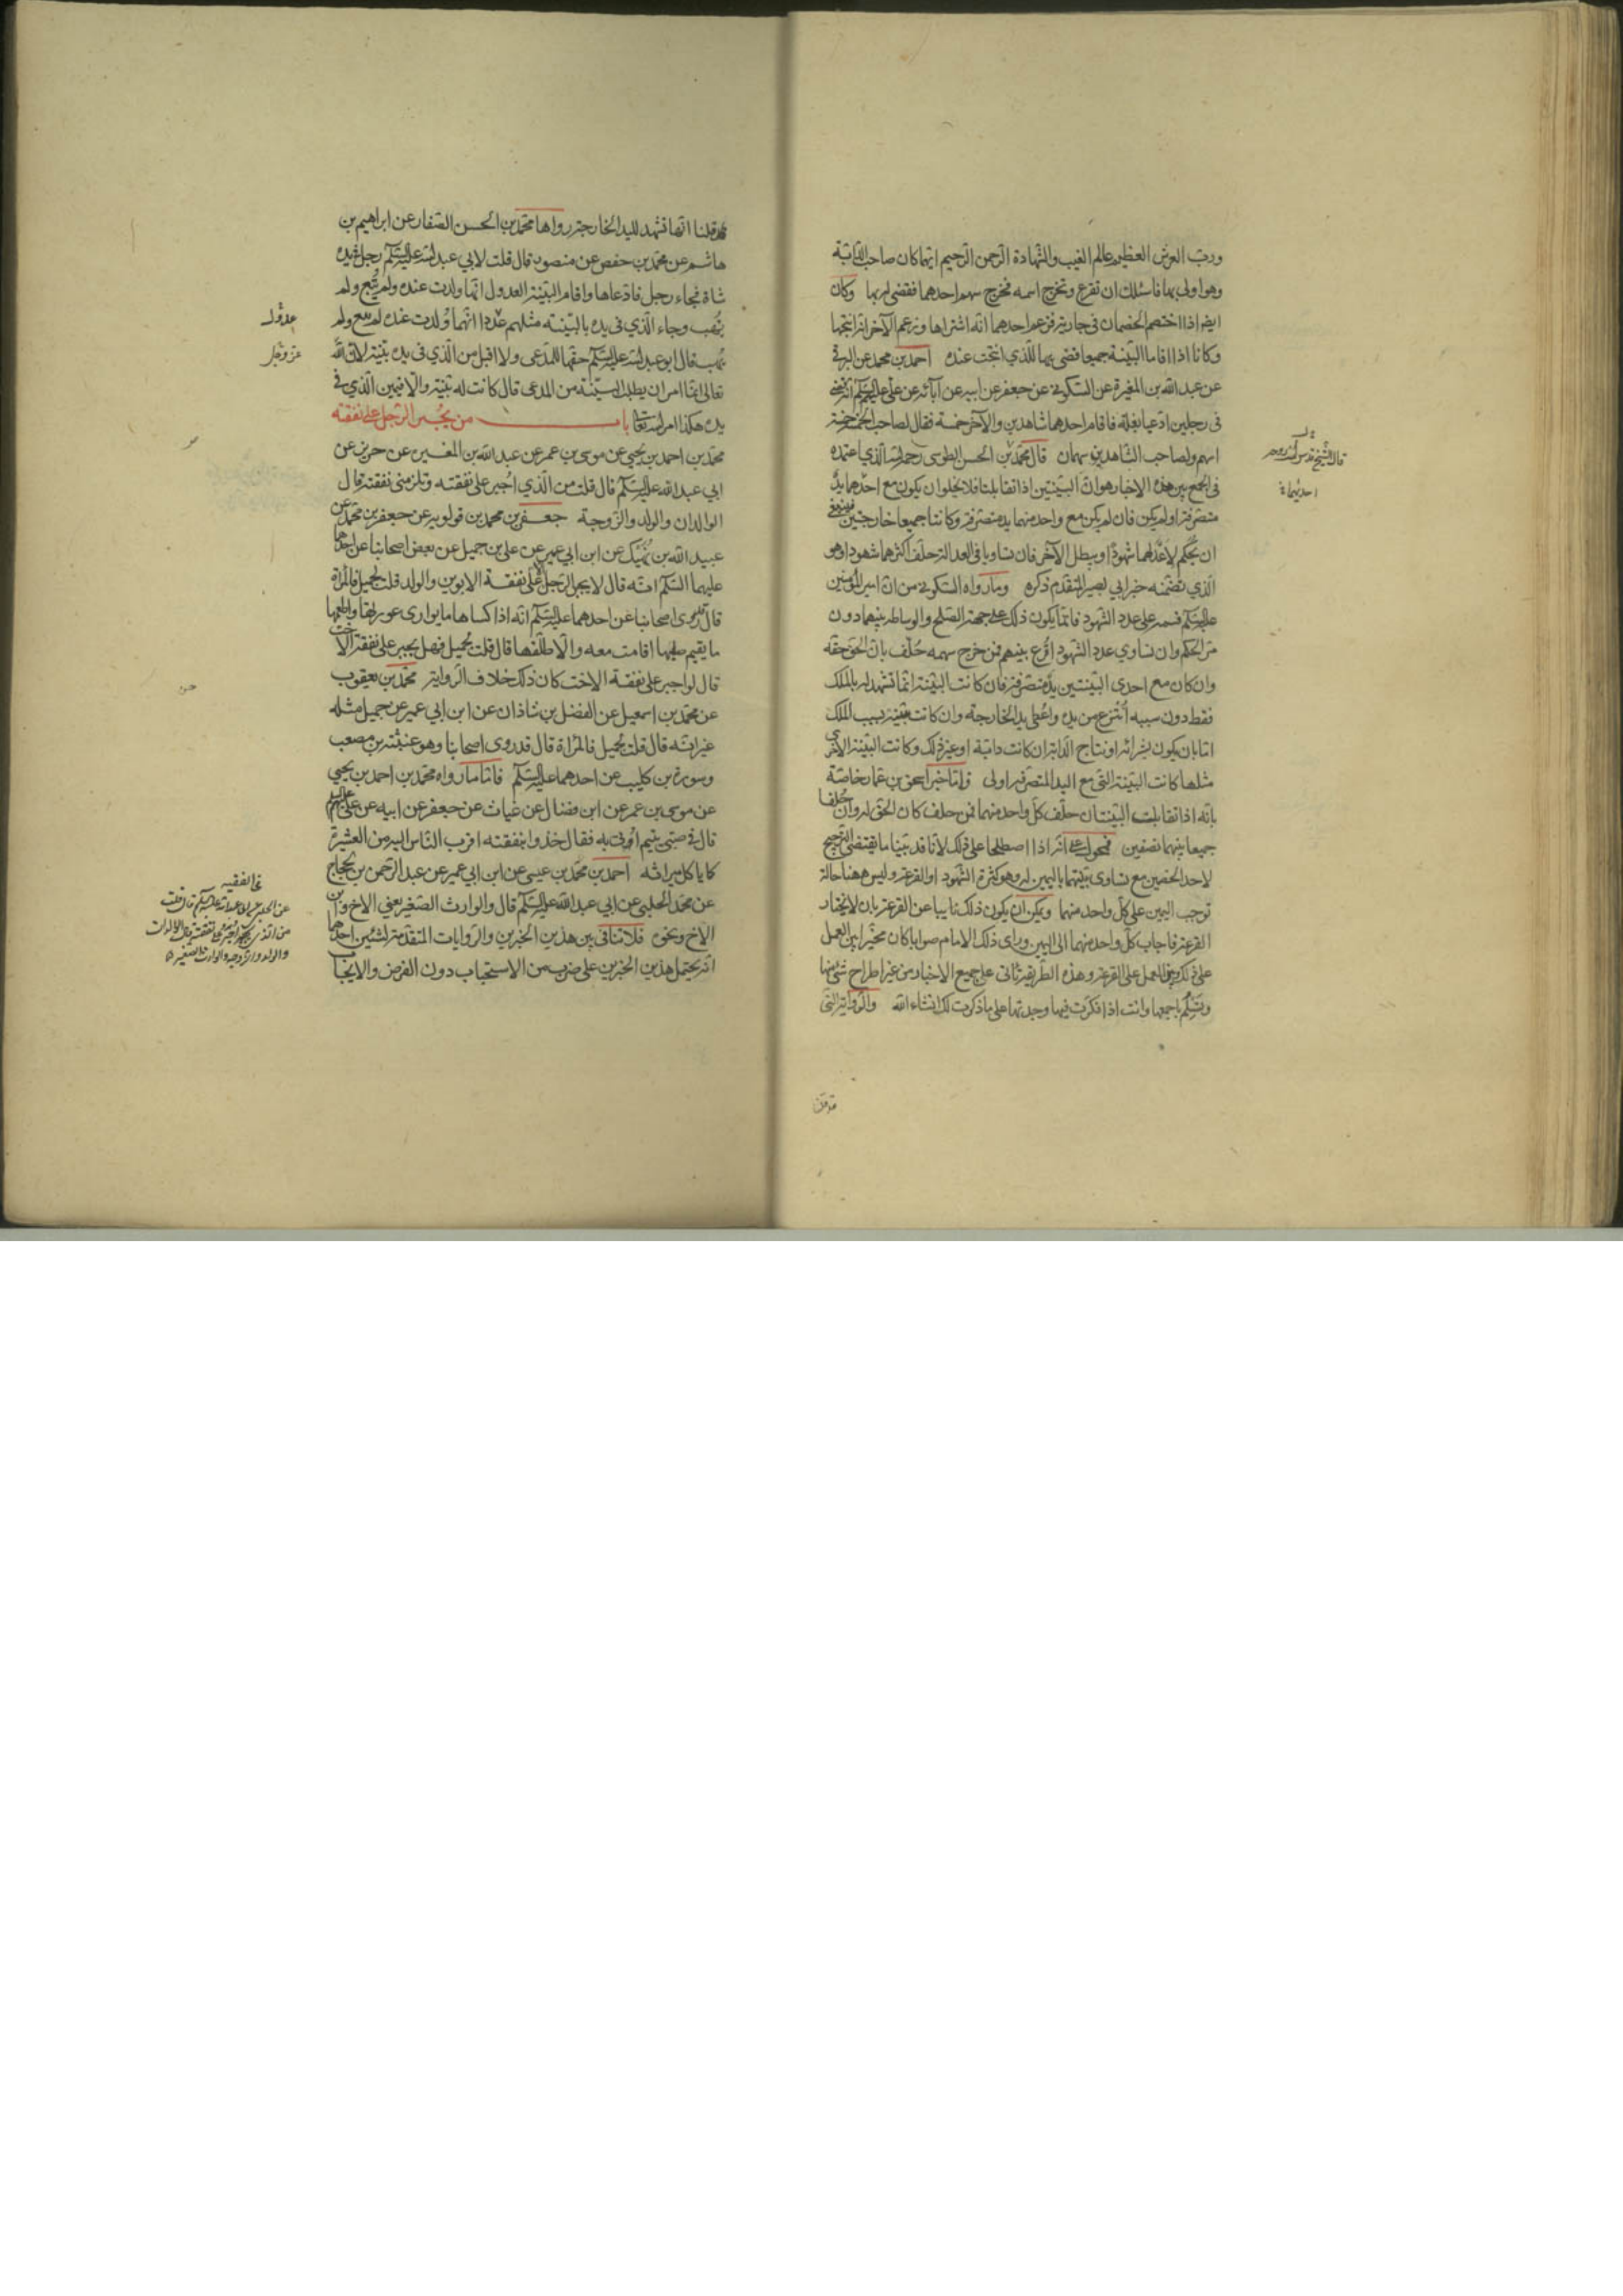 ورب العرش العظيم عالم الغيب والشهادة الرحمن الرحيم ايهما كان صاحب الدابة
وهو اولى بها فاسئلك ان تقرع وتخرج اسمه فخرج سهم احدهما فقضى له بها وكان
ايضا اذا اختصم الخصمان في جارية فزعم احدهما انه اشتراها وزعم الآخر انه انتجها
وكانا اذا اقاما البينة جميعا قضى بها للذي انتجت عنده احمد بن محمد عن البرقي
عن عبد الله بن المغيرة عن السكوني عن جعفر عن ابيه عن آبائه عن علي عليهم السلم انه قضى
في رجلين ادعيا بغلة فاقام احدهما شاهدين والآخر خمسة فقال لصاحب الخمسة خمسة
اسهم ولصاحب الشاهدين سهمان قال محمد بن الحسن الطوسي رحمه الله الذي اعتمده
في الجمع بين هذه الاخبار هو ان البينتين اذا تقابلتا فلا يخلوان يكون مع احدهما يد
متصرفة اولم يكن فان لم يكن مع واحد منهما يد متصرفة وكانتا جميعا خارجتين فينبغي
ان يحكم لاعدلهما شهودا ويبطل الآخر فان تساويا في العدالة حلف اكثرهما شهودا وهو
الذي تضمنه خبر ابي بصير المتقدم ذكره وما رواه السكوني من ان امير المؤمنين
عليه السلم قسمه على عدد الشهود فانما يكون ذلك على جهة الصلح والوساطة بينهما دون
مر الحكم وان تساوي عدد الشهود اقرع بينهم فمن خرج سهمه حلف بان الحق حقه
وان كان مع احدى البينتين يد متصرفة فان كانت البينة انما تشهد له بالملك
فقط دون سببه انتزع من يده واعطى يد الخارجة وان كانت بينته بسبب الملك
اما بان يكون بشرائه او نتاج الدابة ان كانت دابة او غير ذلك وكانت البينة الاخرى
مثلها كانت البينة التي مع اليد المتصرفة اولى واما خبر اسحق بن عمار خاصة
بانه اذا تقابلت البينتان حلف كل واحد منهما فمن حلف كان الحق له وان حلفا
جميعا بينهما نصفين فمحمول على انه اذا اصطلحا على ذلك لانا قد بينا ما يقتضي الترجيح
لاحد الخصمين مع تساوى بينتهما باليمين له وهو كثرة الشهود او القرعة وليس ههنا حالة
توجب اليمين على كل واحد منهما ويمكن ان يكون ذلك نايبا عن القرعة بان لا يختار
القرعة فاجاب كل واحد منهما الى اليمين وراى ذلك الامام صوابا كان مخيرا بين العمل
على ذلك وبين العمل على القرعة وهذه الطريقة تأتى على جميع الاخبار من غير اطراح شئ منها
وتسلم باجمعها وانت اذا فكرت فيها وجدتها على ما ذكرت لك انشاء الله والرواية التي
قال الشيخ قدس الله روحه
احديهما ة
قد قلنا
قد قلنا انها تشهد لليد الخارجة رواها محمد بن الحسن الصفار عن ابراهيم بن
هاشم عن محمد بن حفص عن منصور قال قلت لابي عبد الله عليه السلم رجل في يده
شاة فجاء رجل فادعاها واقام البينة العدول انها ولدت عنده ولم يبع ولم
يهب وجاء الذي في يده بالبينة مثلهم عددا انها ولدت عنده لم يبع ولم
يهب قال ابو عبد الله عليه السلم حقها للمدعى ولا اقبل من الذي في يده بينة لان الله
تعالى انما امر ان يطلب البينة من المدعى قال كانت له بينة والا فيمين الذي في
يده هكذا امر الله تعالى باب من يجبر الرجل على نفقته
محمد بن احمد بن يحيى عن موسى بن عمر عن عبد الله بن المغيرة عن حريز عن
ابي عبد الله عليه السلم قال قلت من الذي اجبر على نفقته وتلزمني نفقته قال
الوالدان والولد والزوجة جعفر بن محمد بن قولويه عن جعفر بن محمد عن
عبيد الله بن نهيك عن ابن ابي عمير عن علي بن جميل عن بعض اصحابنا عن احدهما
عليهما السلم انه قال لا يجبر الرجل الا على نفقة الابوين والولد قلت لجميل فالمراة
قال روى اصحابنا عن احدهما عليه السلم انه اذا كساها ما يوارى عورتها واطعمها
ما يقيم صلبها اقامت معه والا طلقها قال قلت لجميل فهل يجبر على نفقة الاخت
قال لو اجبر على نفقة الاخت كان ذلك خلاف الرواية محمد بن يعقوب
عن محمد بن اسمعيل عن الفضل بن شاذان عن ابن ابي عمير عن جميل مثله
غير انه قال قلت لجميل فالمراة قال قد روى اصحابنا وهو عنبثه بن مصعب
وسورة بن كليب عن احدهما عليه السلم فاما ما رواه محمد بن احمد بن يحيى
عن موسى بن عمر عن ابن فضال عن غياث عن جعفر عن ابيه عن علي عليهم السلم
قال في صبى يتيم اوتي به فقال خذوا بنفقته اقرب الناس اليه من العشيرة
كما ياكل ميراثه احمد بن محمد بن عيسى عن ابن ابي عمير عن عبد الرحمن بن الحجاج
عن محمد الحلبي عن ابي عبد الله عليه السلم قال والوارث الصغير يعني الاخ وابن
الاخ ونحوه فلا تنافى بين هذين الخبرين والروايات المتقدمة لشيئين احدهما
انه يحتمل هذين الخبرين على ضرب من الاستحباب دون الفرض والايجاب
عدول
عز وجل
في الفقيه
عن الحلبي عن ابي عبد الله عليه السلم قال قلت
من الذي اجبر على نفقته قال الوالدان
والولد والزوجة والوارث الصغير